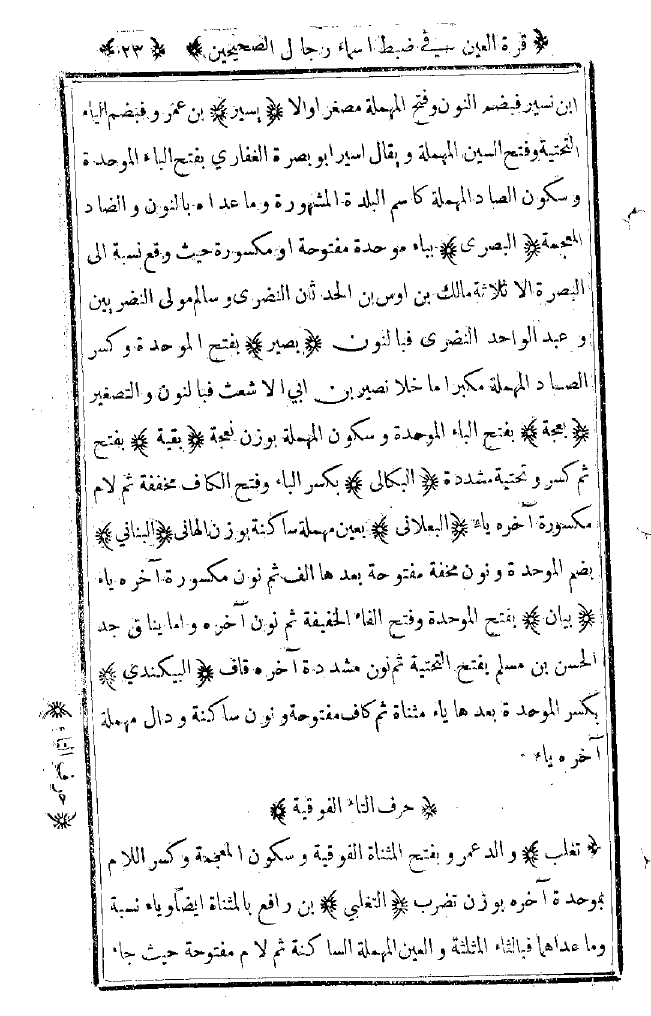 ﴿ قرة العين في ضبط اسماء رجال الصحيحين ﴾ ﴿ ٢٣ ﴾
ابن نسير فبضم النون وفتح المهملة مصغرا والا ﴿ يسير ﴾ بن عمرو فبضم الياء
التحتية وفتح السين المهملة ويقال اسير ابو بصرة الغفاري بفتح الباء الموحدة
وسكون الصاد المهملة كاسم البلدة المشهورة وما عداه بالنون والضاد
المعجمة ﴿ البصرى ﴾ بباء موحدة مفتوحة او مكسورة حيث وقع نسبة الى
البصرة الا ثلاثة مالك بن اوس بن الحدثان النضرى وسالم مولى النضريين
وعبد الواحد النضرى فبالنون ﴿ بصير ﴾ بفتح الموحدة وكسر
الصاد المهملة مكبرا ما خلا نصير بن ابي الاشعث فبالنون والتصغير
﴿ بعجة ﴾ بفتح الباء الموحدة وسكون المهملة بوزن نعجة ﴿ بقية ﴾ بفتح
ثم كسر وتحتية مشددة ﴿ البكالى ﴾ بكسر الباء وفتح الكاف مخففة ثم لام
مكسورة آخره ياء ﴿ البعلانى ﴾ بعين مهملة ساكنة بوزن الهانى ﴿ البناني ﴾
بضم الموحدة ونون مخفة مفتوحة بعدها الف ثم نون مكسورة آخره ياء
﴿ بيان ﴾ بفتح الموحدة وفتح الفاء الخفيفة ثم نون آخره واما يناق جد
الحسن بن مسلم بفتح التحتية ثم نون مشددة آخره قاف ﴿ البيكندي ﴾
بكسر الموحدة بعدها ياء مثناة ثم كاف مفتوحة ونون ساكنة ودال مهملة
آخره ياء ٠
﴿ حرف التاء الفوقية ﴾
﴿ تغلب ﴾ والد عمرو بفتح المثناة الفوقية وسكون المعجمة وكسر اللام
بموحدة آخره بوزن تضرب ﴿ التغلبي ﴾ بن رافع بالمثناة ايضا وياء نسبة
وما عداهما فبالثاء المثلثة والعين المهملة الساكنة ثم لام مفتوحة حيث جاء
﴿ حرف التاء ﴾